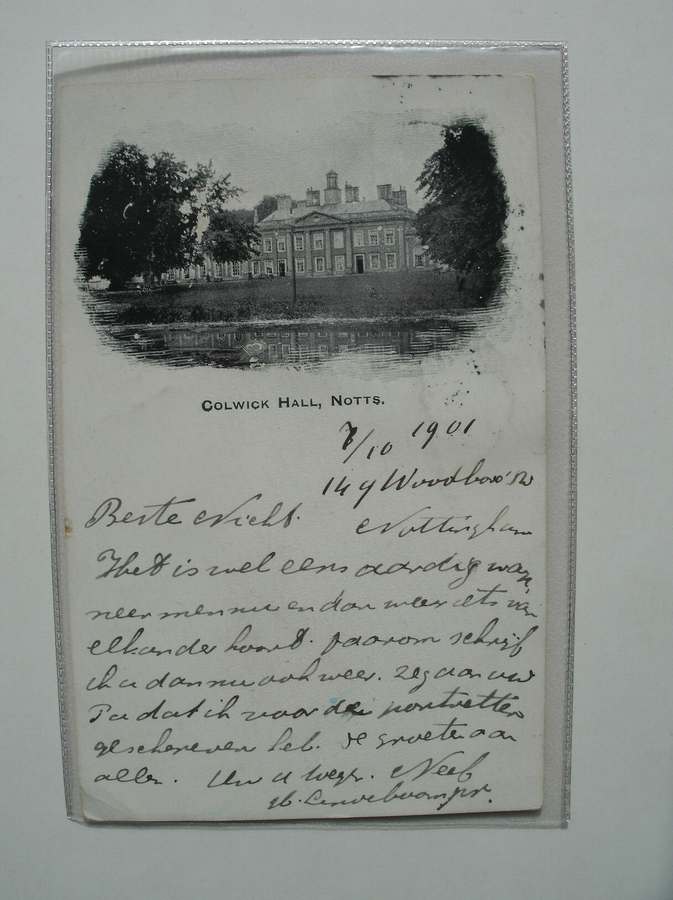 COLWICK HALL, NOTTS.
7/10 1901
149 Woodboro' Rd
Beste Nicht.
Nottingham
Het is wel eens aardig wan
neer men nu en dan weer iets van
elkander hoord. daarom schrijf
ik u dan nu ook weer. Zeg aan uw
Pa dat ik voor de portretten
geschereven heb. de groete aan
allen. Uw d w Neef